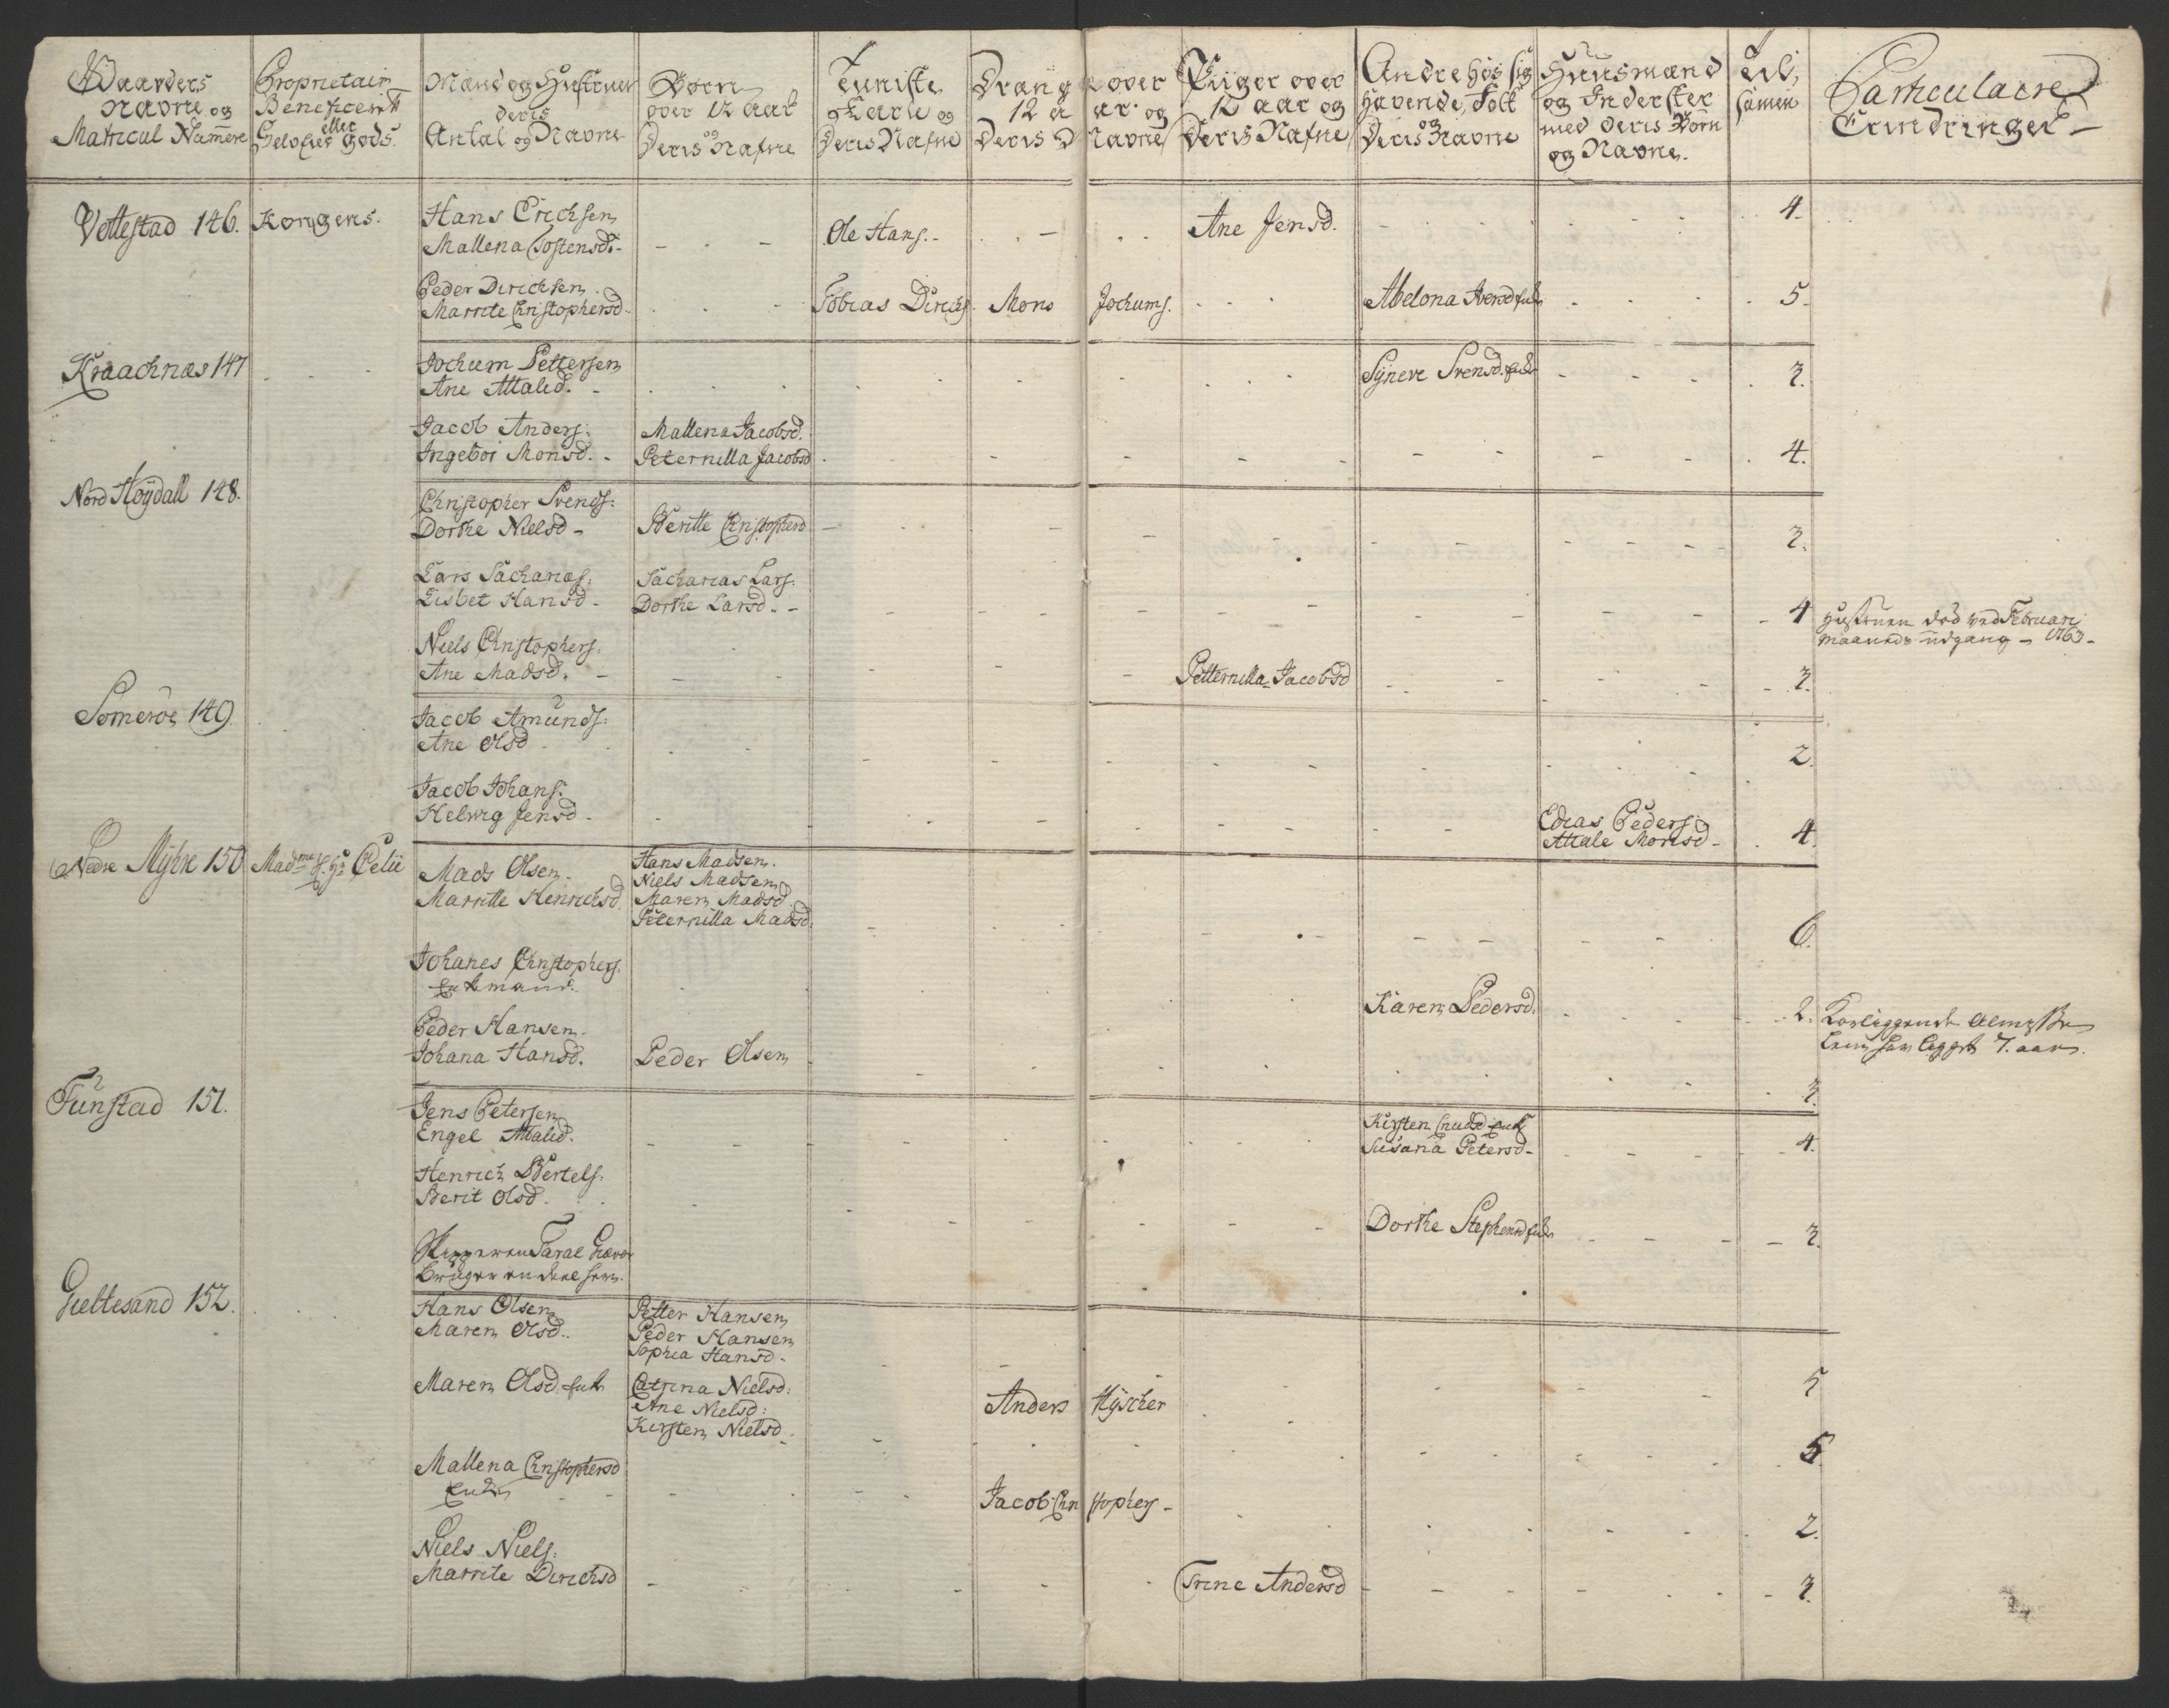 Gaarders Navne og Matricul Numere
Proprietair Beneficeret eller Selvejer gods.
Mænd og Hustruer deris Antal og Navne
Børn over 12 aar og Deris Nafne
Tieniste Karle og Deris Nafne
Drænge over 12 aar og Deris Navne
Piiger over 12 aar og Deris Nafne
Andre Hos sig Havende Folk og Deris Navne
Huusmænd og Inderster med deris Børn og Navne.
Til, samen
Particulaire Erindringer
Vottestad 146. Kongens.
Hans Erichsen Ole Hans. Ane Jensd. 4.
Mallena Tostensd.
Peder Dirichsen Tobias Dirichs. Mons Jochums. Abelona Iversd 5.
Marrite Christophersd.
Kraachnæs 147
Jochum Pettersen Syneve Svensd. 3.
Ane Attalid.
Jacob Anders. Mallena Jacobsd.
Ingeboi Monsd. Peternilla Jacobsd 4.
Nord Høydall 148.
Christopher Svends.
Dorthe Nielsd Beritte Christophersd 3.
Lars Sacharias. Sacharias Lars.
Lisbet Hansd Dorthe Larsd. 4 Hustruen død ved Februari
maaneds udgang 1763
Niels Christophers.
Ane Madsd. Petternilla Jacobsd 3.
Somerøe 149
Jacob Amunds.
Ane Olsd 2.
Jacob Johans.
Helwig Jensd Edias Peders.
Attale Monsd 4.
Nedre Myhre 150 Madme Petii
Mads Olsen Hans Madsen.
Marritte Henrichsd. Niels Madsen
Maren Madsd.
Peternilla Madsd. 6.
Johanes Christophers.
Enkemand. Karen Pedersd. 2. Korliggende
ligget 7. aar.
Peder Hansen.
Johana Hansd. Peder Olsen 3.
Tunstad 151.
Jens Petersen Kirsten Cnudsd
Engel Attalid. Susana Petersd 4.
Henrich Bertels.
Berit Olsd. Dorthe Stephensd 3.
Skipperen
bruger en deel
Gieltesand 152.
Hans Olsen Petter Hansen
Maren Olsd. Peder Hansen
Sophia Hansd. 5
Maren Olsd Catrina Nielsd. Anders Hyscher
Ane Nielsd.
Kirsten Nielsd. 5
Mallena Christophersd
Jacob Christophers 2.
Niels Niels.
Marrite Dirichsd Trine Andersd 3.